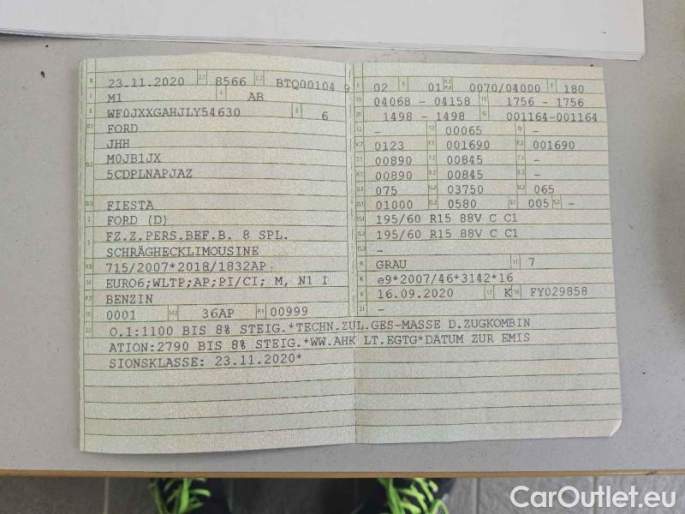 23.11.2020 8566 BTQ00104 9
M1 AB
WF0JXXGAHJLY54630 6
FORD
JHH
M0JB1JX
5CDPLNAPJAZ
FIESTA
FORD (D)
FZ.Z.PERS.BEF.B. 8 SPL.
SCHRÄGHECKLIMOUSINE
715/2007*2018/1832AP
EURO6;WLTP;AP;PI/CI; M, N1 I
BENZIN
0001 36AP 00999
02 01 0070/04000 180
04068 - 04158 1756 - 1756
1498 - 1498 001164-001164
- 00065 -
0123 001690 001690
00890 00845 -
00890 00845 -
075 03750 065
01000 0580 005 -
195/60 R15 88V C C1
195/60 R15 88V C C1
-
GRAU 7
e9*2007/46*3142*16
16.09.2020 K FY029858
-
O.1:1100 BIS 8% STEIG.*TECHN.ZUL.GES-MASSE D.ZUGKOMBIN
ATION:2790 BIS 8% STEIG.*WW.AHK LT.EGTG*DATUM ZUR EMIS
SIONSKLASSE: 23.11.2020*
CarOutlet.eu